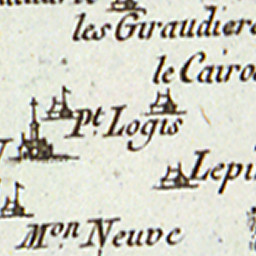 les Giraudiere
le Cairo
Pt. Logis
Lepi
Mon. Neuve